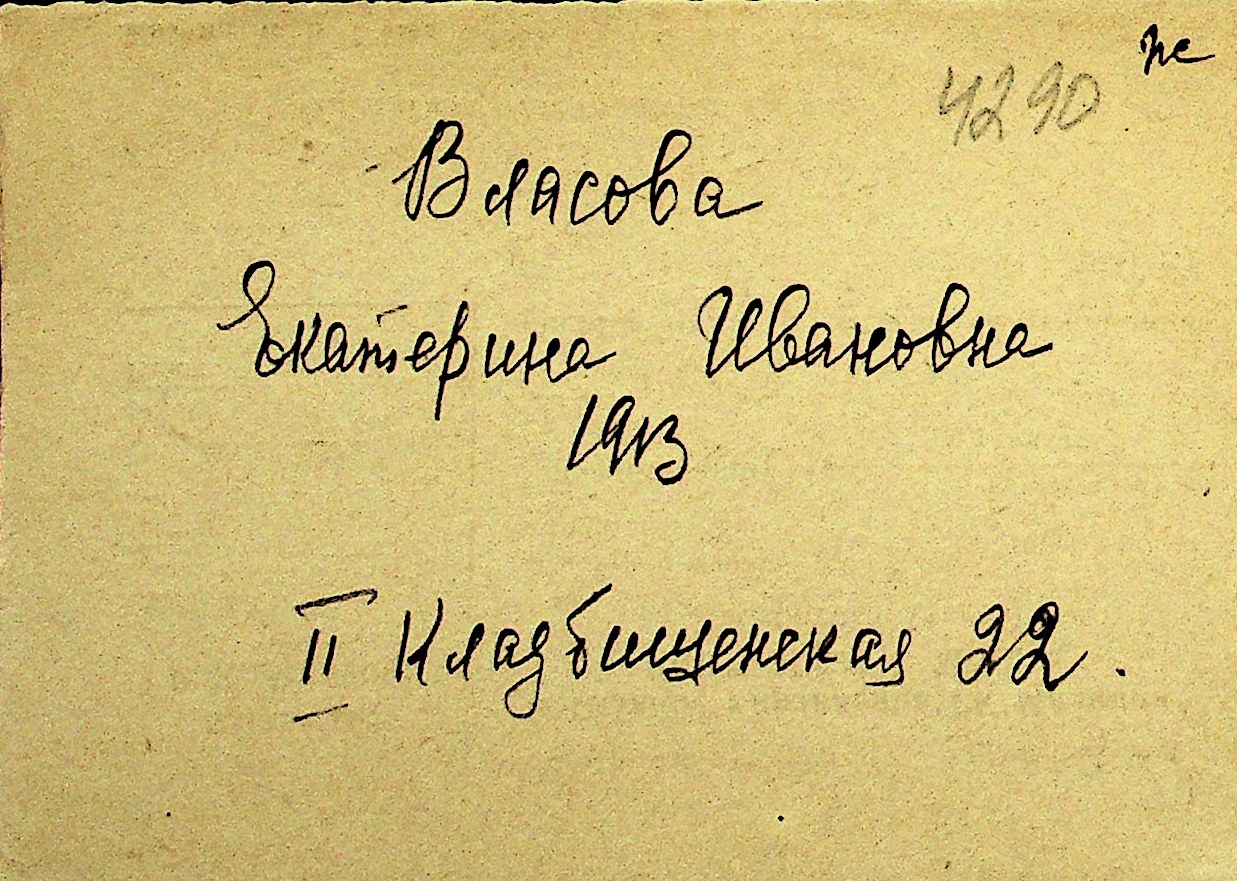 4290
Власова
Екатерина Ивановна
1913
II Кладбищенская 22.